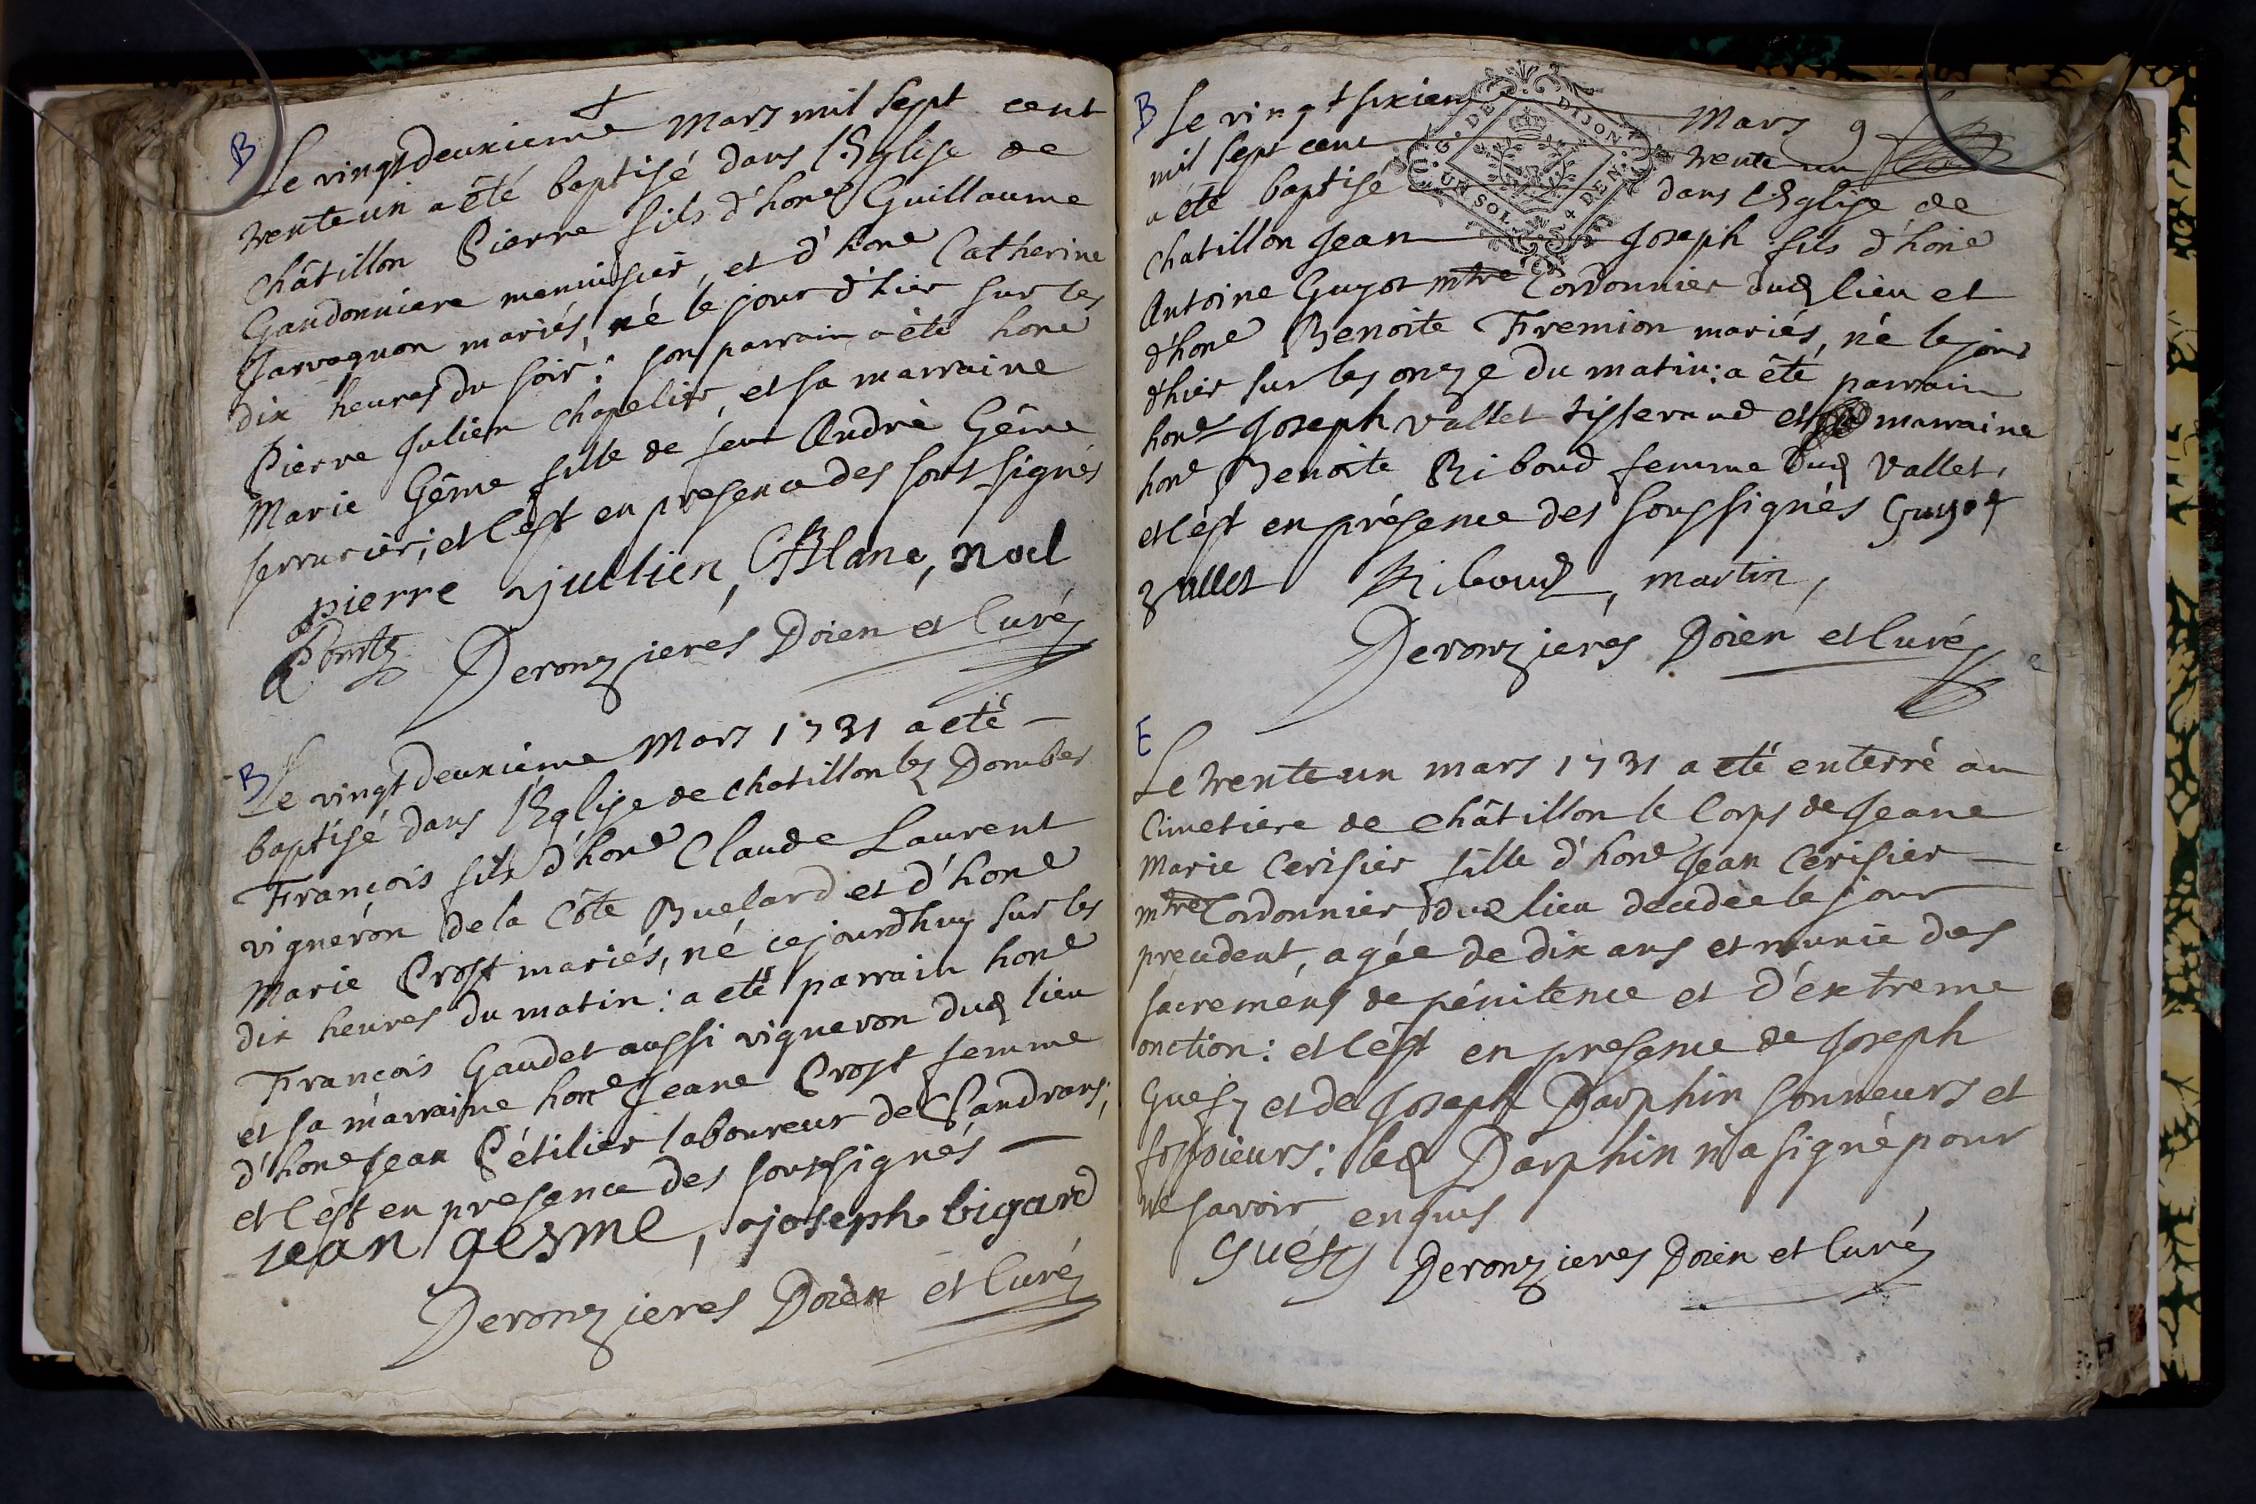 B
Le vingt deuxieme mars mil sept cent
trente un a été baptisé dans l'Eglise de
châtillon Pierre fils d'hone Guillaume
Gaudonniere menuisier, et d'hone Catherine
Jarvagnon mariés, né le jour d'hier sur les
dix heures du soir: son parrain a été hone
Pierre Julien chapelier, et sa marraine
Marie Gême fille de feu André Gême
serrurier; et c'est en presence des soussignés
pierre jullien, CBlanc, noel
Deronzieres Doien et Curé
B
Le vingt deuxiéme Mars 1731 a eté
baptisé dans l'Eglise de chatillon les Dombes
François fils d'hone Claude Laurent
vigneron de la Côte Buelard et d'hone
Marie Crost mariés, né cejourdhuy sur les
dix heures du matin: a eté parrain hone
François Gaudet aussi vigneron dud lieu
et sa marraine hone Jeane Crost femme
d'hone Jean Pétilier laboureur de Sandrans;
et c'est en presence des soussignés
jean gesme, joseph bigard
Deronzieres Doien et Curé
B
Le vingt sixiem mars 9
mil sept cent trente un
a été baptisé dans l'Eglise de
chatillon Jean Joseph fils d'hone
Antoine Guyot mtre Cordonnier dud lieu et
d'hone Benoite Fremion mariés, né le jour
d'hier sur les onze du matin: a été parrain
hone Joseph Vallet tisserand et marraine
hone Benoite Riboud femme dud Vallet,
et c'est en présence des soussignés Guyot
vallet Riboud, martin,
Deronzieres Doien et Curé
G. DE DIJON
UN SOL 4 DEN.
E
Le trente un mars 1731 a eté enterré au
Cimetiere de châtillon le Corps de Jeane
Marie Cerisier fille d'hone Jean Cerisier
mtre Cordonnier dud lieu decedée le jour
precudent, agée de dix ans et munie des
sacremens de pénitence et d'extreme
onction: et c'est en presence de Joseph
Guesy et de Joseph Darphin sonneurs et
fossoieurs: led Darphin n'a signé pour
ne savoir enquis
Guesy Deronzieres Doien et Curé